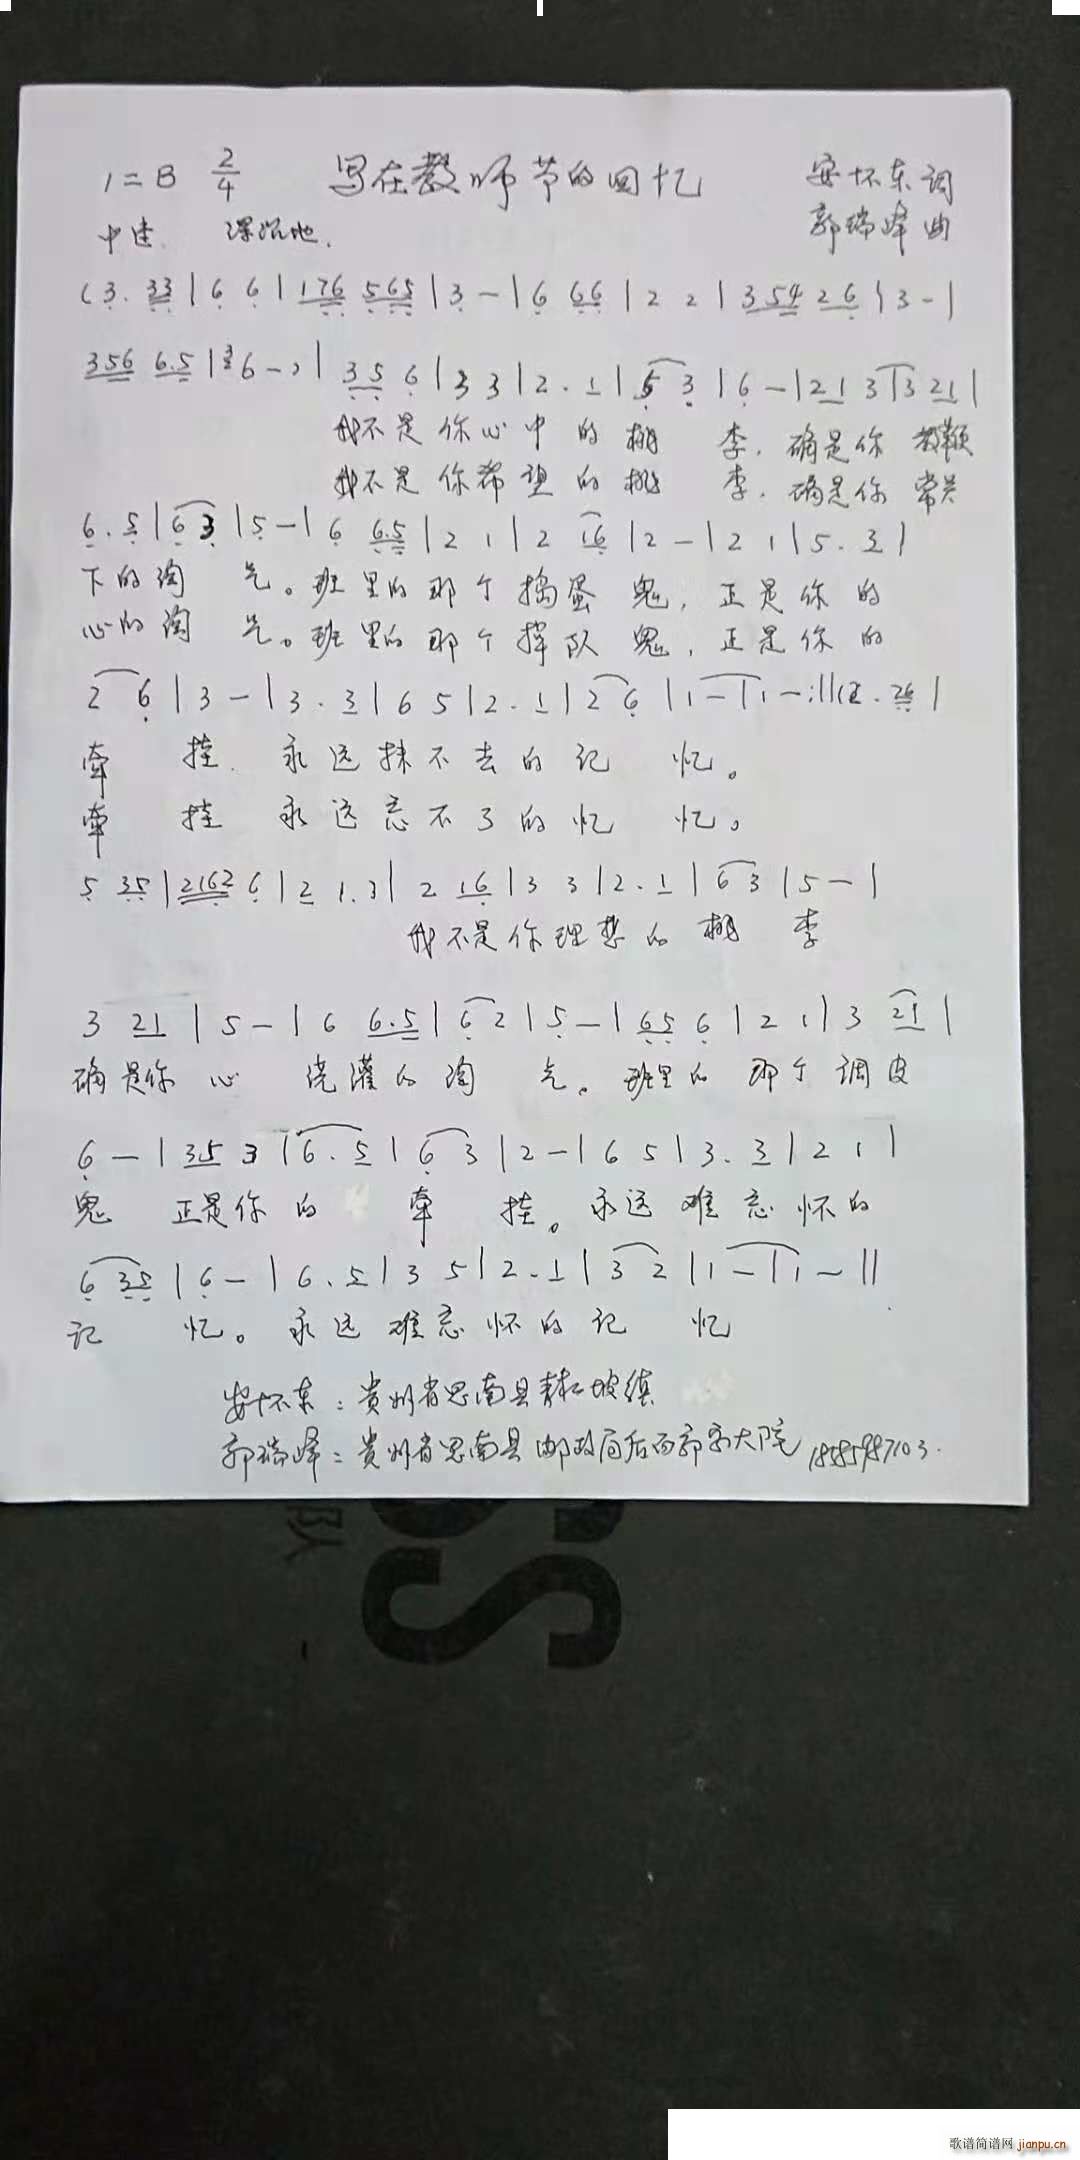 1=B 2/4 写在教师节的回忆 安怀东词
中速 深沉地. 郭瑞峰曲
(3. 33 | 6 6 | 176 565 | 3 - | 6 66 | 2 2 | 354 26 | 3 - |
356 6.5 | 6 - ) | 35 6 | 3 3 | 2. 1 | 5 3 | 6 - | 21 3 | 3 21 |
我不是你心中的桃 李. 确是你 教鞭
我不是你希望的桃 李. 确是你 常关
6. 5 | 6 3 | 5 - | 6 6.5 | 2 1 | 2 16 | 2 - | 2 1 | 5. 3 |
下的淘 气。班里的那个捣蛋鬼, 正是你的
心的淘 气。班里的那个掉队鬼, 正是你的
2 6 | 3 - | 3. 3 | 6 5 | 2. 1 | 2 6 | 1 - | 1 - :|| (2. 26 |
牵 挂. 永远抹不去的记 忆。
牵 挂 永远忘不了的忆 忆。
5 35 | 2162 6 | 2 1.3 | 2 16 | 3 3 | 2. 1 | 6 3 | 5 - |
我不是你理想的桃 李
3 21 | 5 - | 6 6.5 | 6 2 | 5 - | 65 6 | 2 1 | 3 21 |
确是你 心 浇灌的淘 气。班里的 那个调皮
6 - | 35 3 | 6. 5 | 6 3 | 2 - | 6 5 | 3. 3 | 2 1 |
鬼 正是你的 牵 挂。永远难忘怀的
6 35 | 6 - | 6. 5 | 3 5 | 2. 1 | 3 2 | 1 - | 1 - ||
记 忆。永远难忘怀的记 忆
安怀东:贵州省思南县 坡镇
郭瑞峰:贵州省思南县邮政局后面郭家大院 18585987103.
队
SS
歌谱简谱网 jianpu.cn